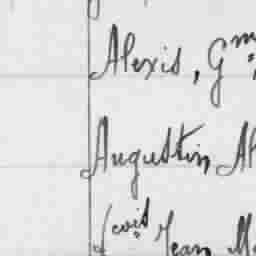 Alexis, Gme
Augustin, Al
fcois Jean M